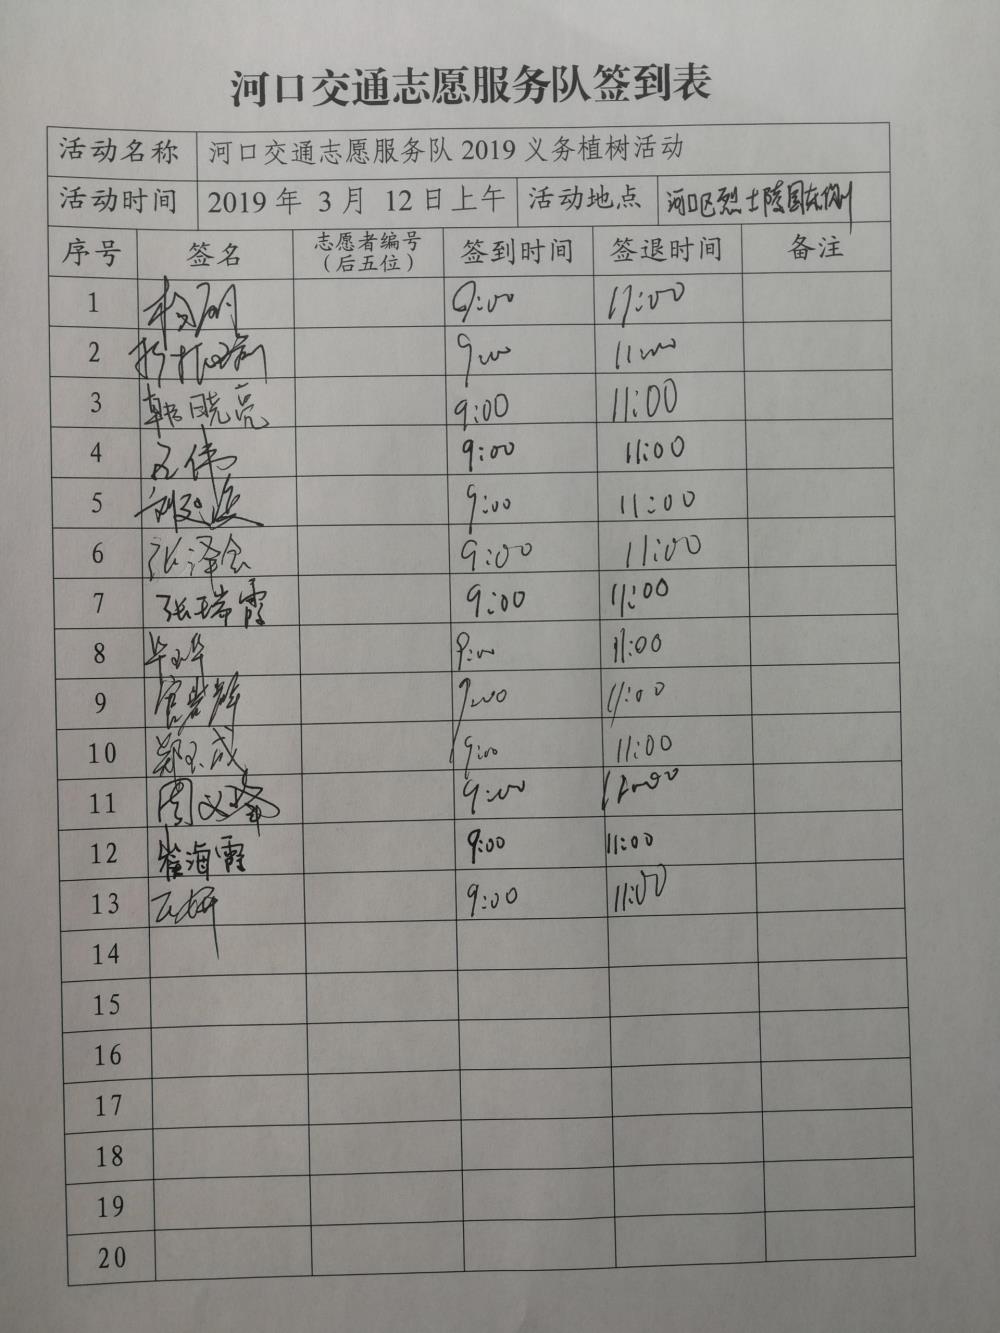 河口交通志愿服务队签到表
活动名称 河口交通志愿服务队2019义务植树活动
活动时间 2019年 3月 12日上午 活动地点 河口区烈士陵园东侧
序号 签名 志愿者编号（后五位） 签到时间 签退时间 备注
1 9:00 11:00
2 9:00 11:00
3 韩晓亮 9:00 11:00
4 9:00 11:00
5 9:00 11:00
6 张泽会 9:00 11:00
7 张瑞霞 9:00 11:00
8 9:00 11:00
9 9:00 11:00
10 郑玉成 9:00 11:00
11 周义峰 9:00 11:00
12 崔海霞 9:00 11:00
13 9:00 11:00
14
15
16
17
18
19
20